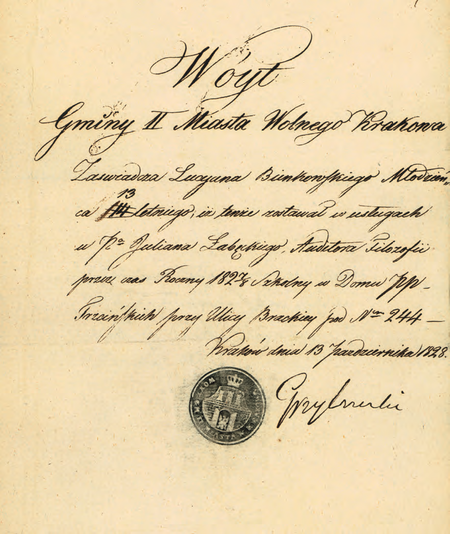 Wóyt
Gminy II Miasta Wolnego Krakowa
Zaświadcza Lucyana Binkowskiego Młodzień,
13
ca letniego, iż tenże zostawał w usługach
u Pa Juliana Łabęckiego, Auditora Filozofii
przez czas Roczny 1827/8 Szkolny w Domu PP.
przy Ulicy Brackiey pod Nrem 244 —
Kraków dnia 13 Października 1828.